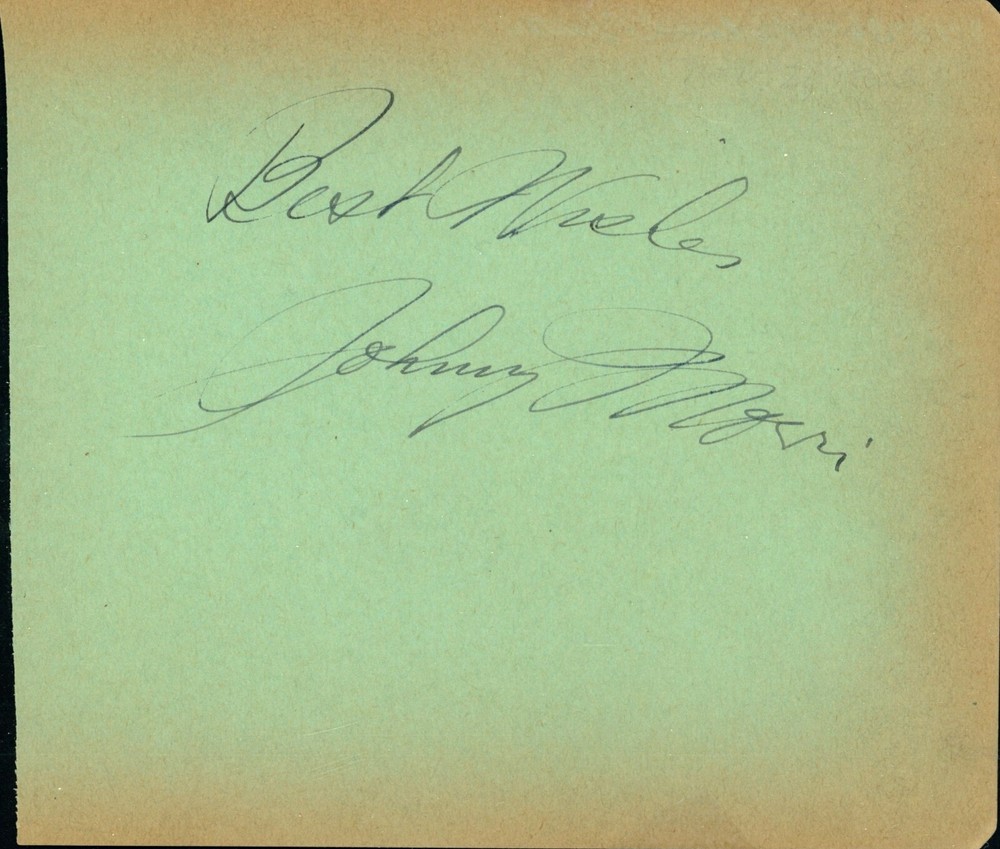 Best Wishes
Johnny Morris